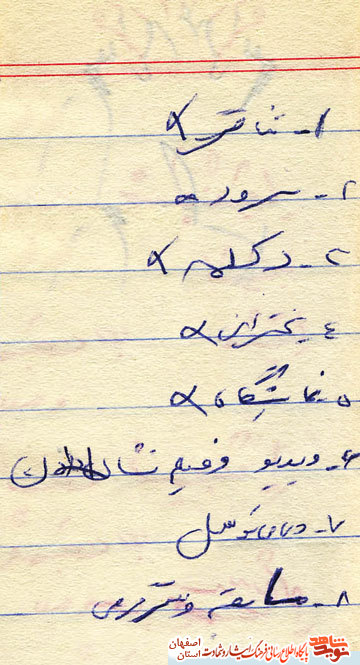 ۱- تئاتر
۲- سرود
۳- دکلمه
٤- سخنرانی
۵- نمایشگاه
۶- ویدیو و فیلم نشان دادن
۷- دعای توسل
۸- مسابقه و
نوید شاهد
پایگاه اطلاع رسانی فرهنگ ایثار و شهادت
استان اصفهان